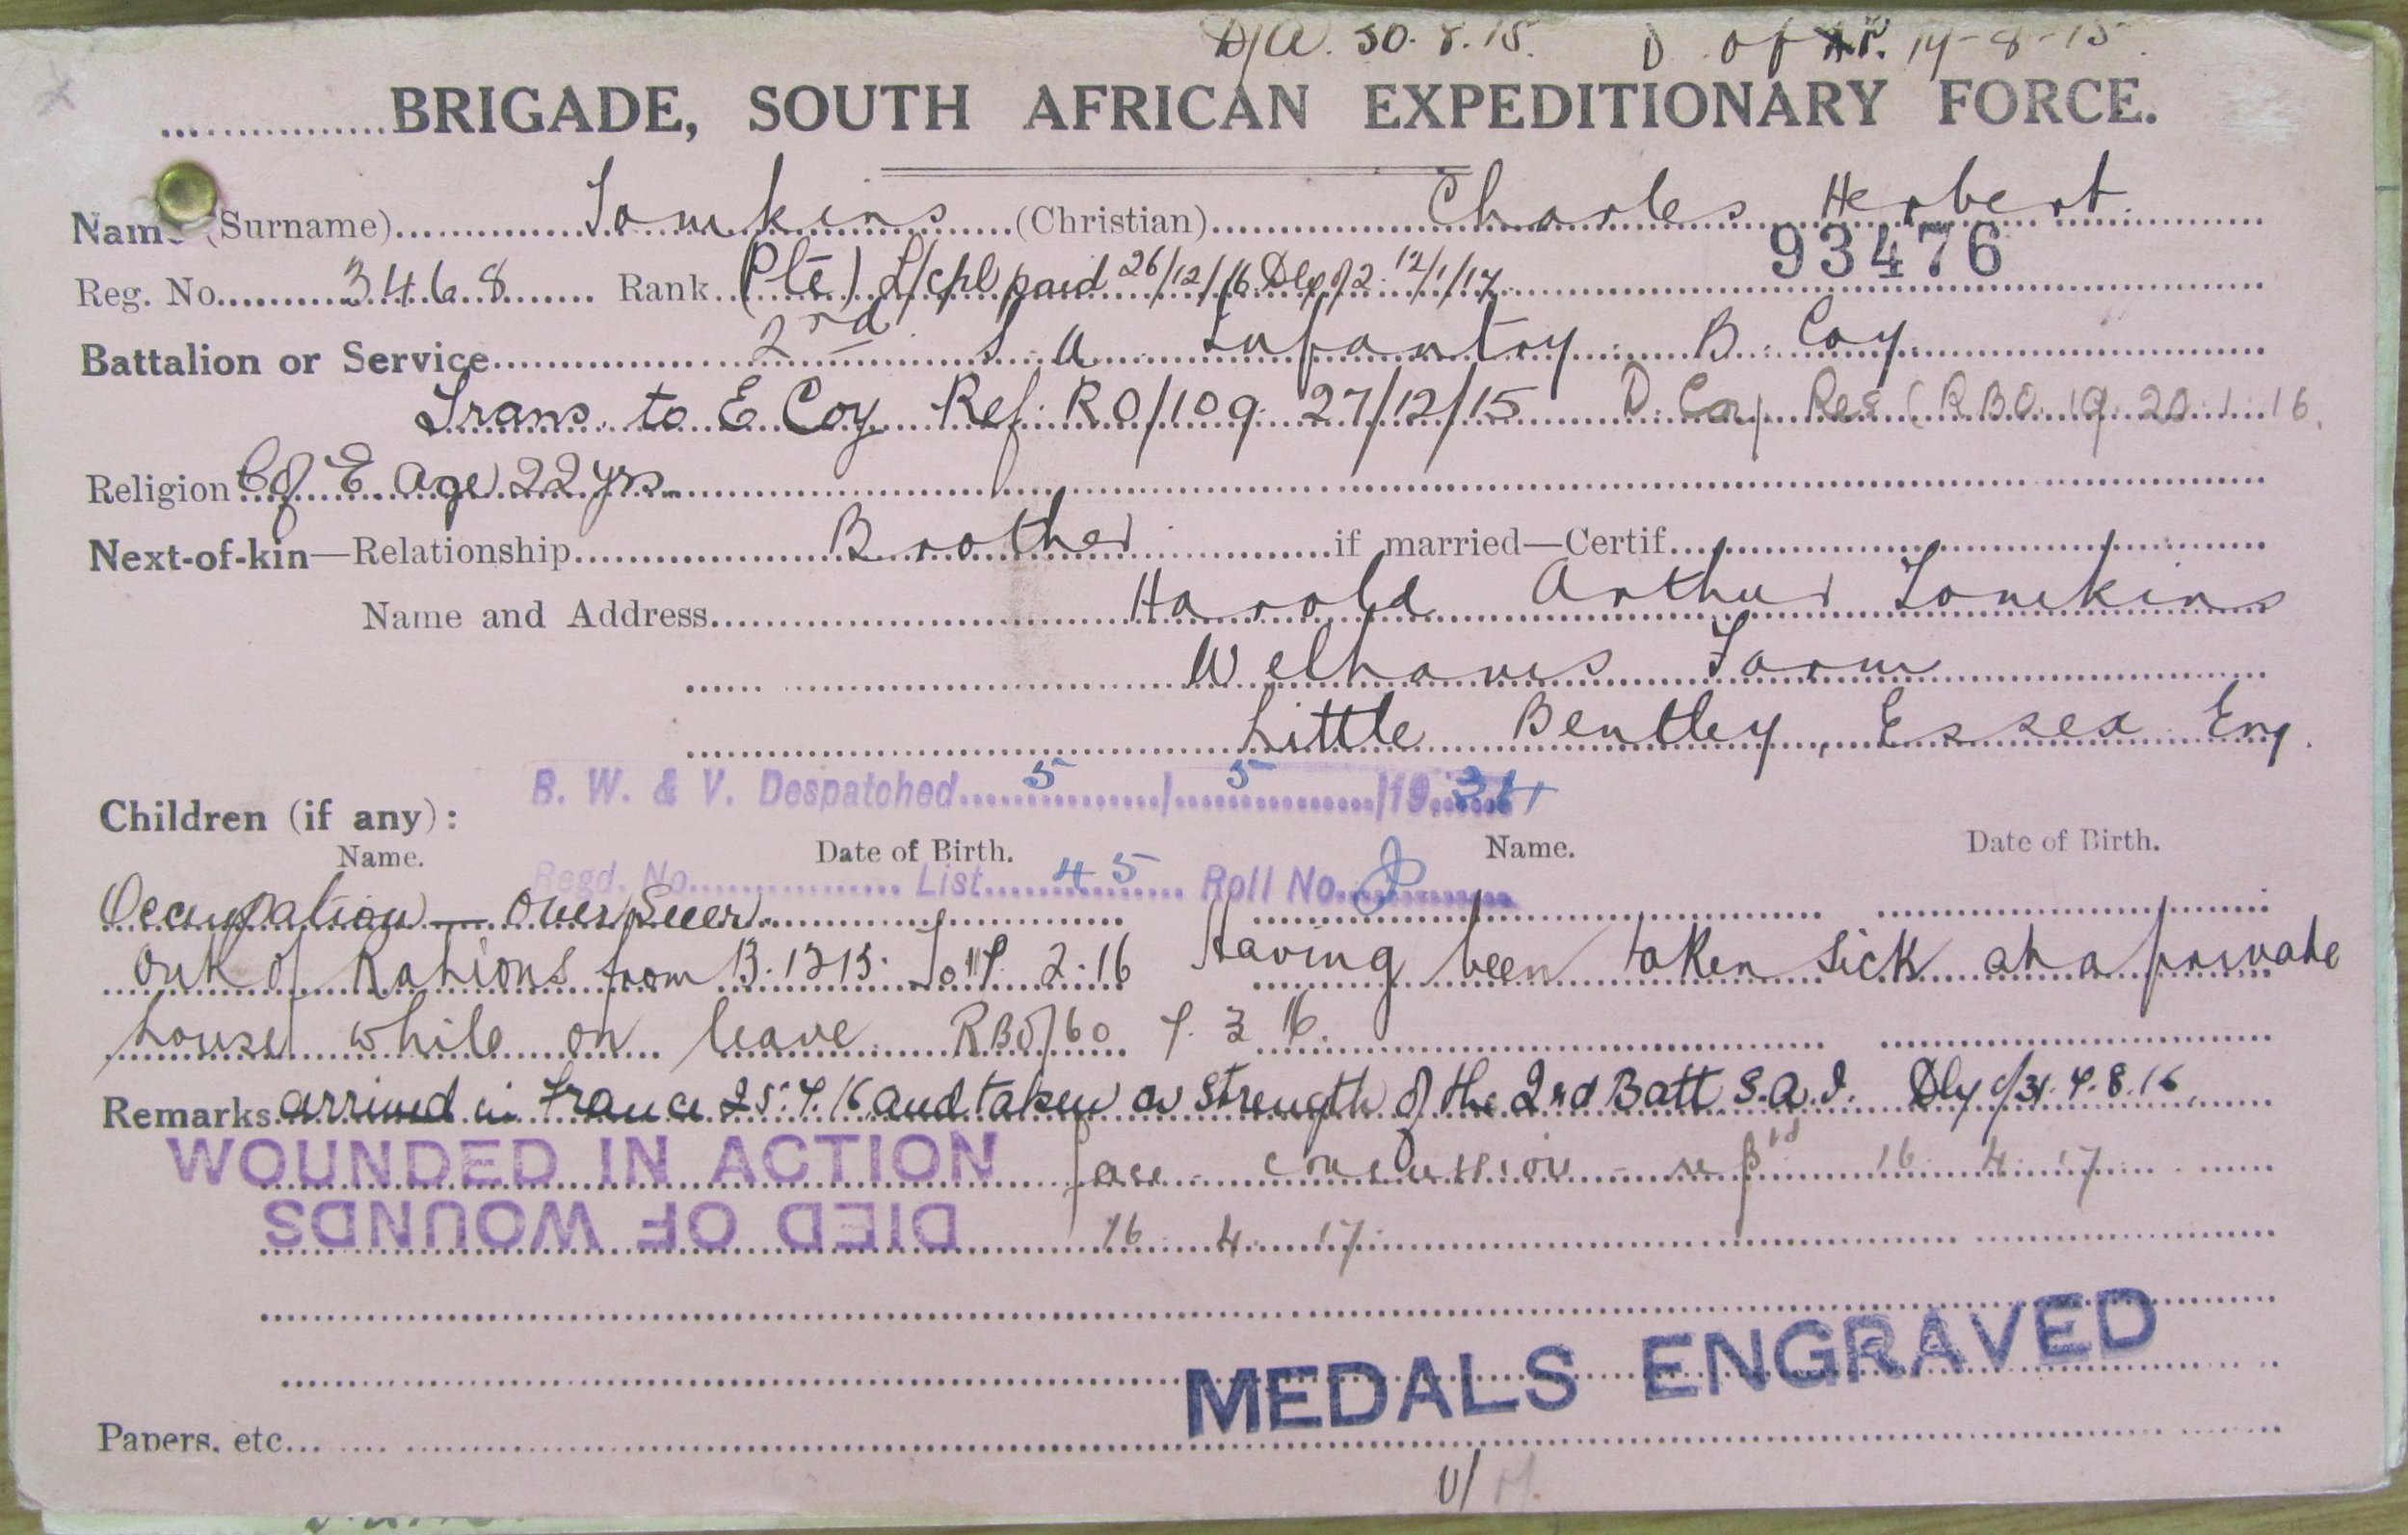 D/A. 30.8.15. D. of 14-8-15.
BRIGADE, SOUTH AFRICAN EXPEDITIONARY FORCE.
Name (Surname) Tomkins (Christian) Charles Herbert.
93476
Reg. No. 3468 Rank (Pte) L/cpl paid 26/12/16 12/1/17
Battalion or Service 2nd S. A. Infantry B. Coy.
Trans. to E Coy Ref. RO/109. 27/12/15 D. Coy Res (RBO. 19. 20.1.16.
Religion C of E. age 22 yrs.
Next-of-kin—Relationship Brother if married—Certif.
Name and Address Harold Arthur Tomkins
Welhams Farm
Little Bentley, Essex Eng.
B. W. & V. Despatched 5/5/19
Children (if any):
Name. Date of Birth. Name. Date of Birth.
Regd. No. List 45 Roll No.
Occupation — Overseer.
Out of Rations from 2.16 Having been taken sick at a private
house while on leave RBO/60 3 16.
Remarks arrived in France 25.7.16 and taken on strength of the 2nd Batt S.A.I. 4.8.16.
WOUNDED IN ACTION face concussion 16 4 17
DIED OF WOUNDS 16 4 17
MEDALS ENGRAVED
Papers, etc.